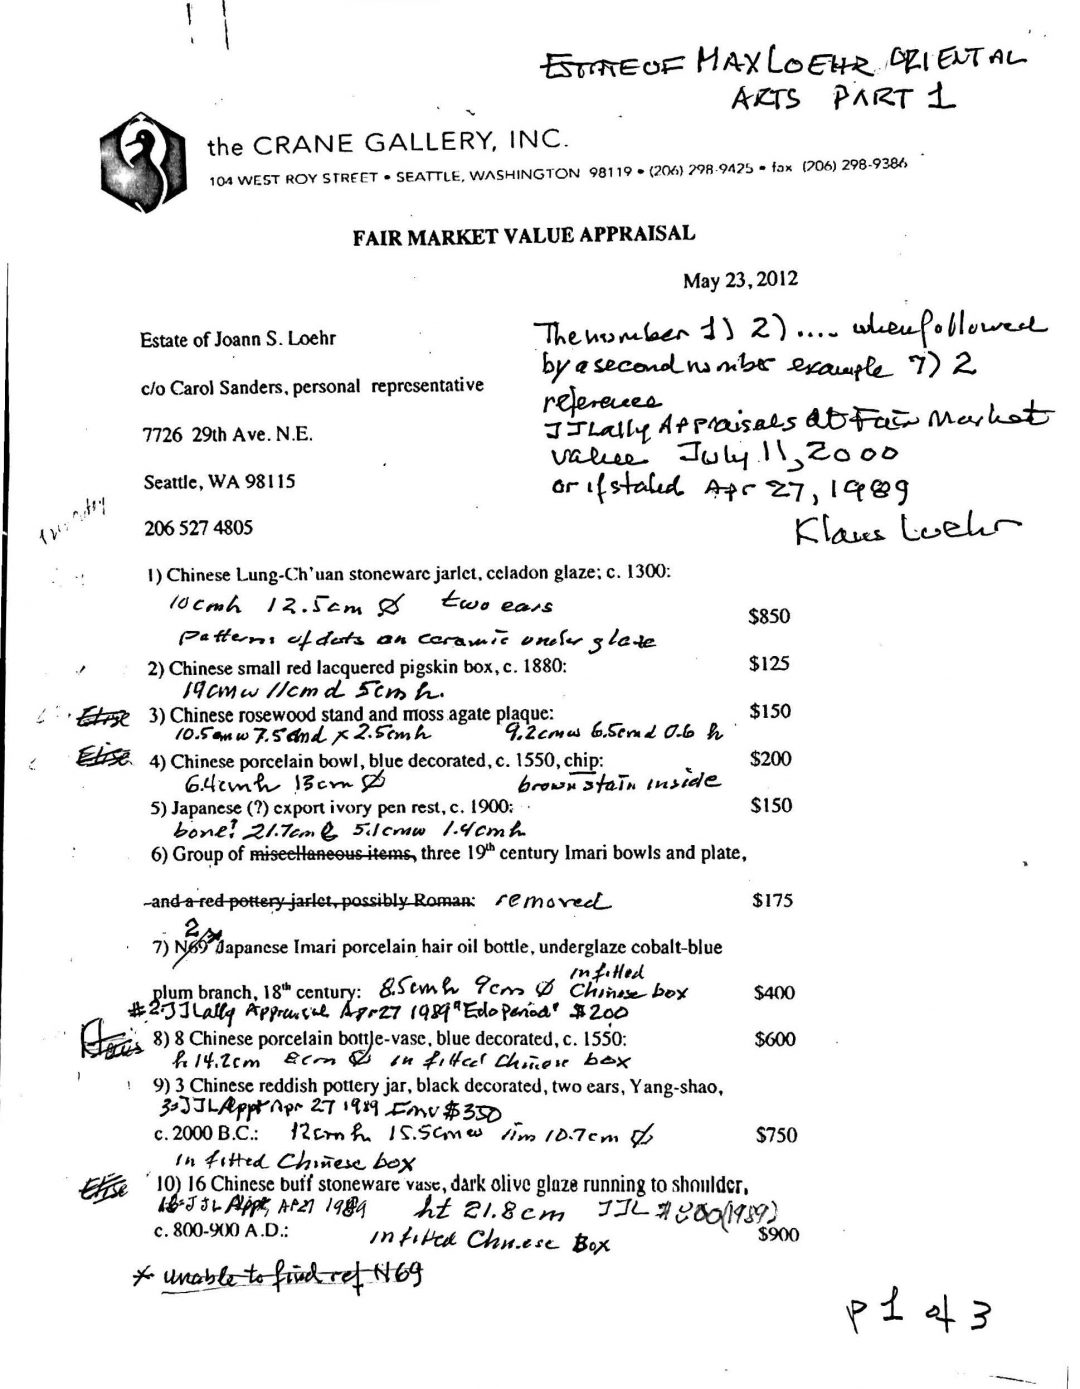 Estate of MAX LOEHR ORIENTAL
ARTS PART 1
the CRANE GALLERY, INC.
104 WEST ROY STREET • SEATTLE, WASHINGTON 98119 • (206) 298-9425 • fax (206) 298-9386
FAIR MARKET VALUE APPRAISAL
May 23, 2012
Estate of Joann S. Loehr
c/o Carol Sanders, personal representative
7726 29th Ave. N.E.
Seattle, WA 98115
206 527 4805
The number 1) 2) .... when followed
by a second number example 7) 2
reference
JJLally Appraisals at Fair Market
value July 11, 2000
or if stated Apr 27, 1989
Klaus Loehr
1) Chinese Lung-Ch'uan stoneware jarlet, celadon glaze; c. 1300:
10cmh 12.5cm Ø two ears
$850
Patterns of dots on ceramic under glaze
2) Chinese small red lacquered pigskin box, c. 1880:
$125
19cmw 11cm d 5cm h.
Elise 3) Chinese rosewood stand and moss agate plaque:
$150
10.5cmw 7.5cmd x 2.5cmh 9.2cmw 6.5cmd 0.6 h
Elise 4) Chinese porcelain bowl, blue decorated, c. 1550, chip:
$200
6.4cmh 13cm Ø brown stain inside
5) Japanese (?) export ivory pen rest, c. 1900:
$150
bone? 21.7cm l 5.1cmw 1.4cmh
6) Group of miscellaneous items, three 19th century Imari bowls and plate,
and a red pottery jarlet, possibly Roman: removed
$175
7) N69 2* Japanese Imari porcelain hair oil bottle, underglaze cobalt-blue
plum branch, 18th century: 8.5cmh 9cm Ø in fitted Chinese box
$400
#2-JJLally Appraisal Apr 27 1989 "Edo Period" $200
Klaus 8) 8 Chinese porcelain bottle-vase, blue decorated, c. 1550:
$600
h 14.2cm 8cm Ø in fitted Chinese box
9) 3 Chinese reddish pottery jar, black decorated, two ears, Yang-shao,
3=JJL Appr Apr 27 1989 FMV $350
c. 2000 B.C.: 12cm h 15.5cmw rim 10.7cm Ø
$750
in fitted Chinese box
Elise 10) 16 Chinese buff stoneware vase, dark olive glaze running to shoulder,
16=JJL Appr, AP27 1989 ht 21.8cm JJL (1989)
c. 800-900 A.D.: in fitted Chinese Box
$900
* unable to find ref N69
p 1 of 3